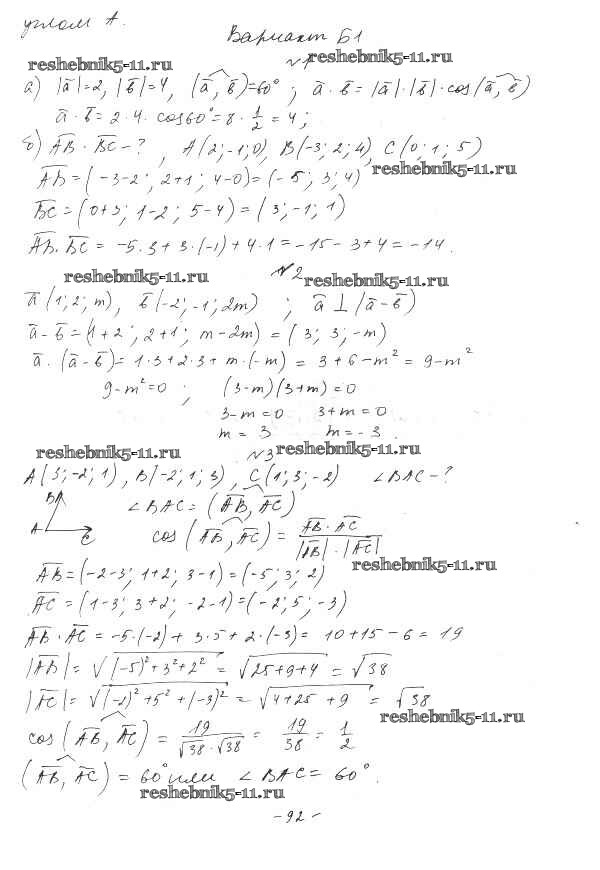 углом A.
Вариант Б1
reshebnik5-11.ru
№1
reshebnik5-11.ru
а) |a̅|=2, |b̅|=4, (a̅, b̅)=60°; a̅·b̅=|a̅|·|b̅|·cos(a̅, b̅)
a̅·b̅=2·4·cos60°=8·1/2=4;
б) AB·BC-?, A(2;-1;0), B(-3;2;4), C(0;1;5)
AB=(-3-2; 2+1; 4-0)=(-5; 3; 4)
reshebnik5-11.ru
BC=(0+3; 1-2; 5-4)=(3;-1;1)
AB·BC=-5·3+3·(-1)+4·1=-15-3+4=-14.
reshebnik5-11.ru
№2
reshebnik5-11.ru
a̅(1;2;m), b̅(-2;-1;2m); a̅⊥(a̅-b̅)
a̅-b̅=(1+2; 2+1; m-2m)=(3; 3; -m)
a̅·(a̅-b̅)=1·3+2·3+m·(-m)=3+6-m²=9-m²
9-m²=0; (3-m)(3+m)=0
3-m=0 3+m=0
m=3 m=-3.
reshebnik5-11.ru
№3
reshebnik5-11.ru
A(3;-2;1), B(-2;1;3), C(1;3;-2) ∠BAC-?
B
∠BAC=(AB, AC)
A C
cos(AB, AC)=AB·AC/|AB|·|AC|
AB=(-2-3; 1+2; 3-1)=(-5; 3; 2)
reshebnik5-11.ru
AC=(1-3; 3+2; -2-1)=(-2; 5; -3)
AB·AC=-5·(-2)+3·5+2·(-3)=10+15-6=19
|AB|=√(-5)²+3²+2²=√25+9+4=√38
|AC|=√(-2)²+5²+(-3)²=√4+25+9=√38
reshebnik5-11.ru
cos(AB, AC)=19/√38·√38=19/38=1/2
(AB, AC)=60° или ∠BAC=60°.
reshebnik5-11.ru
-92-